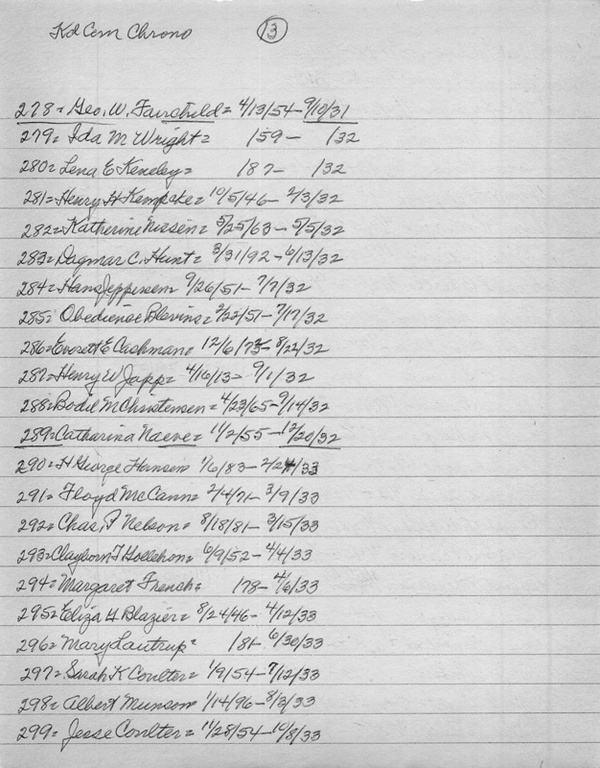 Kd Cem Chrono 13
278= Geo. W. Fairchild= 4/13/54-9/10/31
279= Ida M Wright= /59- /32
280= Lena E Keneley= /87- /32
281= Henry H Kempcke= 10/5/46- 2/3/32
282= Katherine Nissen= 5/25/63- 5/5/32
283= Dagmar C. Hunt= 3/31/92-6/13/32
284= Hans Jeppersen= 9/26/51- 7/7/32
285= Obedience Blevins= 2/22/51-7/17/32
286= Everett E Cashman= 12/6/73- 8/22/32
287= Henry W Japp= 4/16/13- 9/1/32
288= Bodil M Christensen= 4/23/65-9/14/32
289= Catharina Naeve= 11/2/55-12/20/32
290= H George Hansen 1/6/83- /33
291= Floyd McCann= 2/4/71- 3/9/33
292= Chas. P Nelson= 8/18/81- 3/15/33
293= Clayborn T Hollehon= 6/9/52- 4/4/33
294= Margaret French= /78- 4/6/33
295= Eliza H Blazier= 8/24/46- 4/12/33
296= Mary Lautrup= /81- 6/30/33
297= Sarah K Coulter= 1/9/54-7/12/33
298= Albert Munson= 1/14/96- 8/3/33
299= Jesse Coulter= 11/28/54-10/8/33